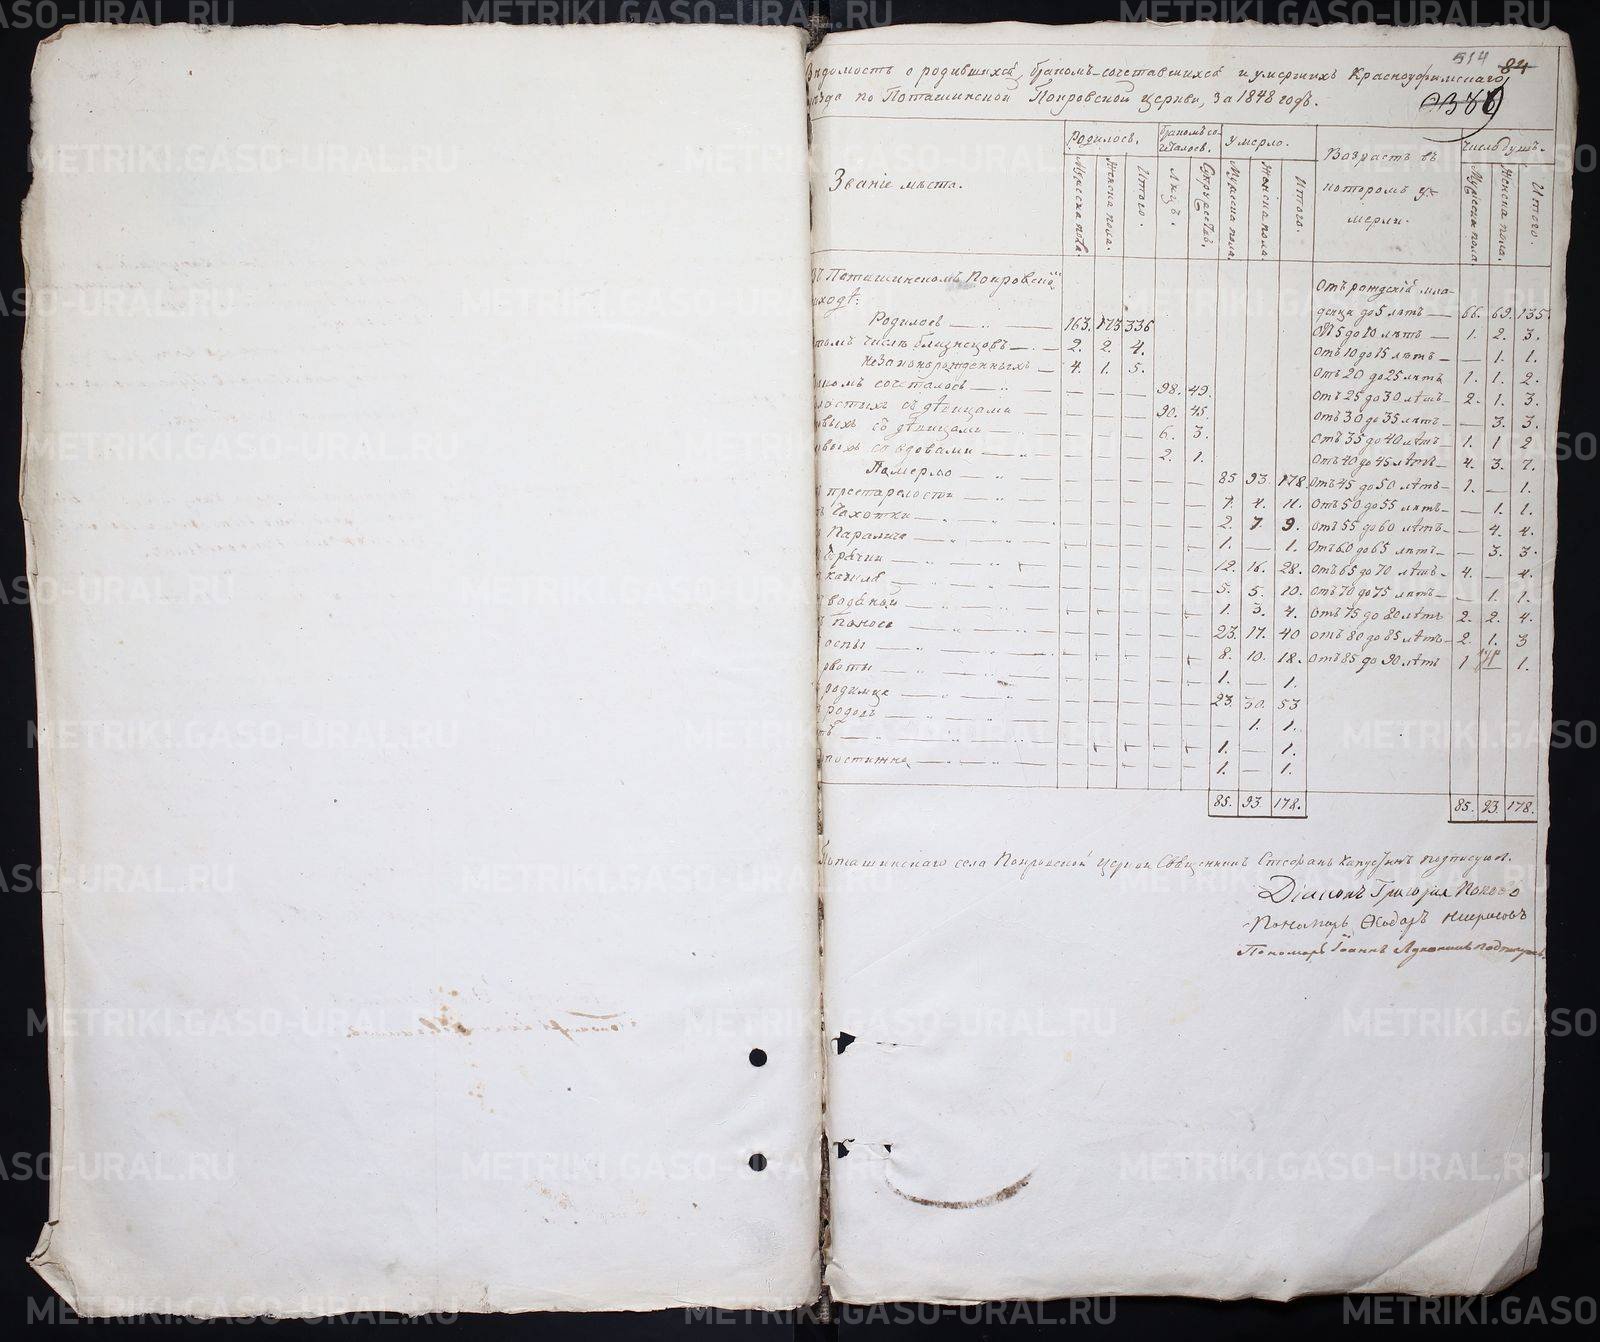 514 84
Ведомость о родившихся, бракомъ-сочетавшихся и умершихъ Красноуфимскаго
уѣзда по Поташинской Покровской церкви, за 1848 годъ.
Званіе мѣста.
Родилось. Бракомъ сочеталось. Умерло. Возрастъ въ которомъ умерли. Число душъ.
Мужеска пола. Женска пола. Итого. Лицъ. Супружествъ. Мужеска пола. Женска пола. Итого. Мужеска пола. Женска пола. Итого.
Въ Поташинскомъ Покровской
приходѣ:
Родилось 163. 173 336
томъ числѣ близнецовъ 2. 2. 4.
незаконорожденныхъ 4. 1. 5.
Бракомъ сочеталось 98. 49.
холостыхъ съ дѣвицами 90. 45.
вдовыхъ съ дѣвицами 6. 3.
вдовыхъ со вдовами 2. 1.
Померло 85 93. 178.
престарелости 7. 4. 11.
Чахотки 2. 7. 9.
Паралича 1. — 1.
Горячки 12. 16. 28.
кашля 5. 5. 10.
водяной 1. 3. 4.
поноса 23. 17. 40
оспы 8. 10. 18.
рвоты 1. — 1.
родимца 23. 30. 53
родовъ — 1. 1.
1. — 1.
1. — 1.
85. 93 178.
Отъ рожденія мла-
денца до 5 лѣтъ 66. 69. 135.
Отъ 5 до 10 лѣтъ 1. 2. 3.
Отъ 10 до 15 лѣтъ — 1. 1.
Отъ 20 до 25 лѣтъ 1. 1. 2.
Отъ 25 до 30 лѣтъ 2. 1. 3.
Отъ 30 до 35 лѣтъ — 3. 3.
Отъ 35 до 40 лѣтъ 1. 1 2
Отъ 40 до 45 лѣтъ 4. 3. 7.
Отъ 45 до 50 лѣтъ 1. — 1.
Отъ 50 до 55 лѣтъ — 1. 1.
Отъ 55 до 60 лѣтъ — 4. 4.
Отъ 60 до 65 лѣтъ — 3. 3.
Отъ 65 до 70 лѣтъ 4. — 4.
Отъ 70 до 75 лѣтъ — 1. 1.
Отъ 75 до 80 лѣтъ 2. 2. 4.
Отъ 80 до 85 лѣтъ 2. 1. 3
Отъ 85 до 90 лѣтъ 1 — 1.
85. 93 178.
Поташинскаго села Покровской церкви Священникъ Стефанъ Капустинъ подписуюсь.
Діаконъ Григорій Поповъ
Пономарь Ѳеодоръ Некрасовъ
Пономарь Іоаннъ Луканинъ подписуюсь.
METRIKI.GASO-URAL.RU